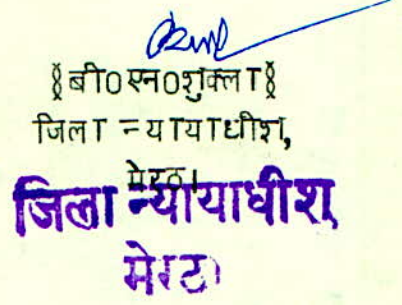 §बी0एन0शुक्ला§
जिला न्यायाधीश,
मेरठ।
जिला न्यायाधीश
मेरठ